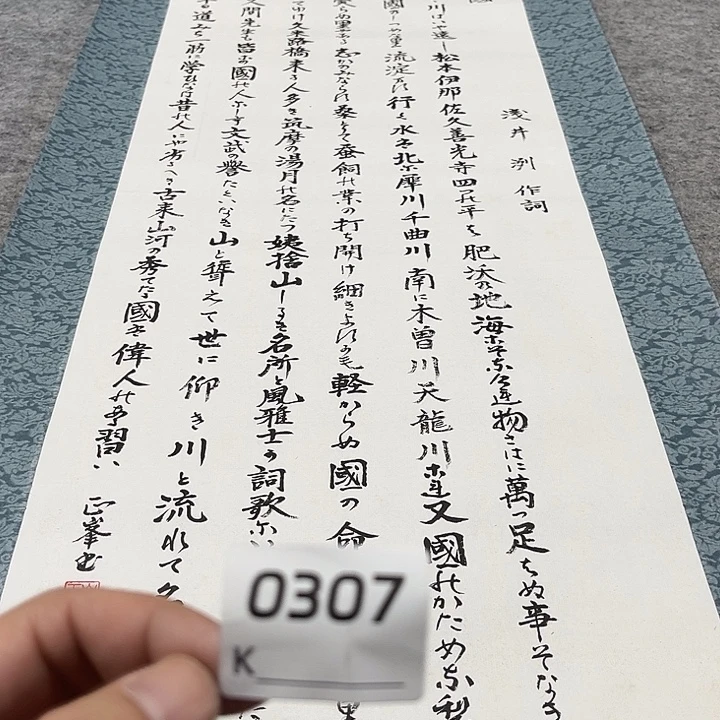 浅井洌 作詞
川はいや遠し 松本伊那佐久善光寺四つの平は肥沃の地海こそなけれ物さはに萬つ足らぬ事そなき
國のしつめ也 流淀ます行く水は北に犀川千曲川南に木曽川天龍川これ又國のかためなり
らぬ里やある しかのみならす桑とりて蚕飼の業の打ち開け細きよすかも軽からぬ國の命
てゆけ久米路橋 来る人多き筑摩の湯月の名にたつ姨捨山しるき名所と風雅士か詞歌に
先生も皆此國の人にして文武の誉たくひなき山と聳えて世に仰き川と流れて
道 みち一筋に学ひなは昔の人にや劣るへき古来山河の秀てたる國は偉人のある習い
正峯書
0307
K